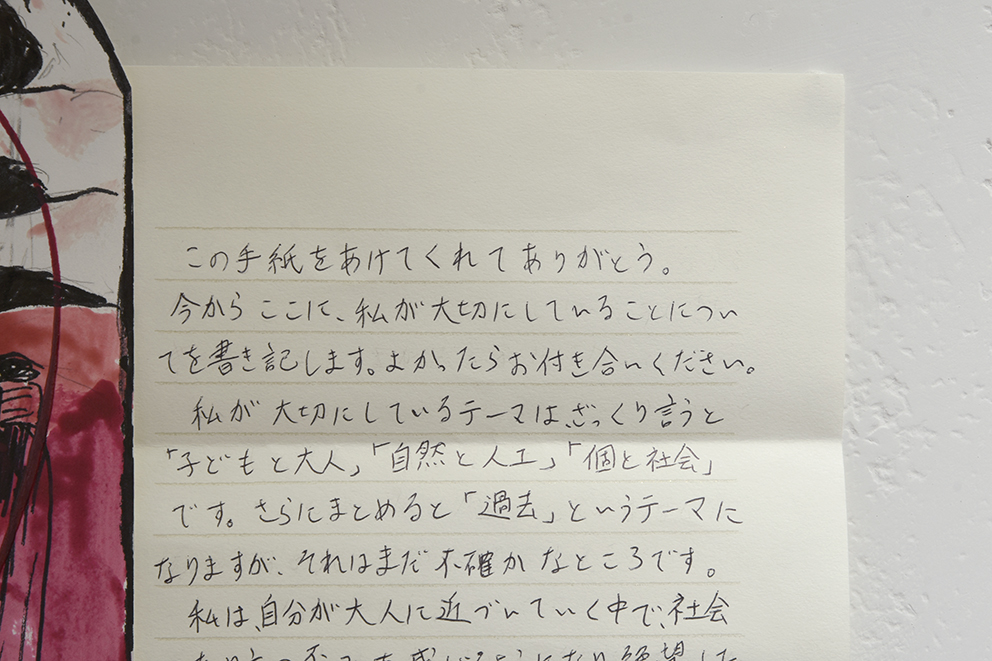 この手紙をあけてくれてありがとう。
今からここに、私が大切にしていることについ
てを書き記します。よかったらお付き合いください。
私が大切にしているテーマは、ざっくり言うと
「子どもと大人」「自然と人工」「個と社会」
です。さらにまとめると「過去」というテーマに
なりますが、それはまだ不確かなところです。
私は、自分が大人に近づいていく中で、社会